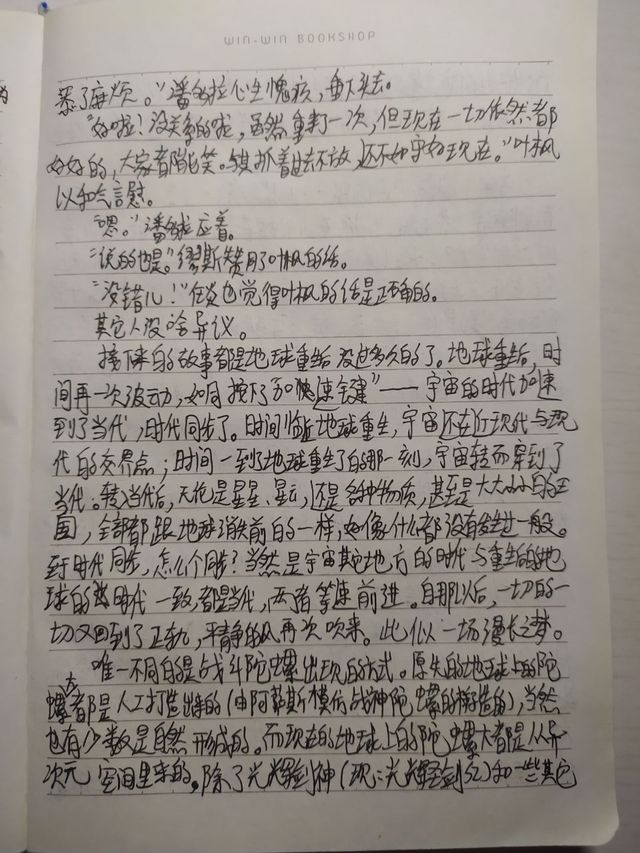 WIN-WIN BOOKSHOP
惹了麻烦。"潘多拉心生愧疚，垂下头去。
"好啦！没关系的啦，虽然重打一次，但现在一切依然都
好好的，大家都能笑。与其抓着过去不放，还不如守好现在。"叶枫
以和气言慰。
"嗯。"潘多拉应着。
"说的也是。"缪斯赞同了叶枫的话。
"没错儿！"任炎也觉得叶枫的话是正确的。
其它人没啥异议。
接下来的故事都是地球重生后没过多久的了。地球重生后，时
间再一次波动，如同按下了加"快速键"——宇宙的时代加速
到了当代，时代同步了。时间临近地球重生，宇宙还在近现代与现
代的交界点；时间一到了地球重生了的那一刻，宇宙转而穿到了
当代。转入当代后，无论是星星、星云，还是各种物质，甚至是大大小小的王
国，全部都跟地球消失前的一样，如像什么都没有发生过一般。
至于时代同步，怎么个同步？当然是宇宙其它地方的时代与重生后的地
球的时代一致，都是当代，两者等速前进。自那以后，一切的一
切又回到了正轨，平静的风再次吹来。此似一场漫长之梦。
唯一不同的是战斗陀螺出现的方式。原先的地球上的陀
螺大都是人工打造出来的（由阿菲斯模仿战神陀螺的构造的），当然
也有少数是自然形成的。而现在的地球上的陀螺大都是从异
次元空间里来的。除了光辉剑神（现：光辉圣剑红）和一些其它